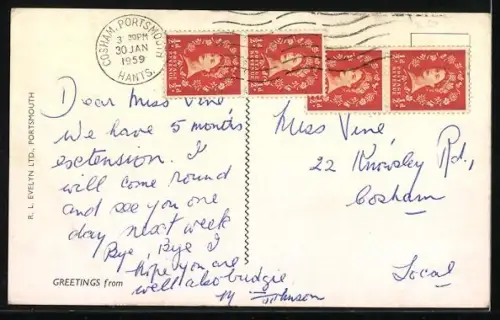 COSHAM, PORTSMOUTH
3 30PM
30 JAN
1959
HANTS.
Dear Miss Vine,
We have 5 months
esctension. I
will come round
and see you one
day next week
Bye, Bye I
hope you are
well also budgie
M Johnson
Miss Vine
22 Knowsley Rd,
Cosham
Local
GREETINGS from
R. L. EVELYN LTD., PORTSMOUTH